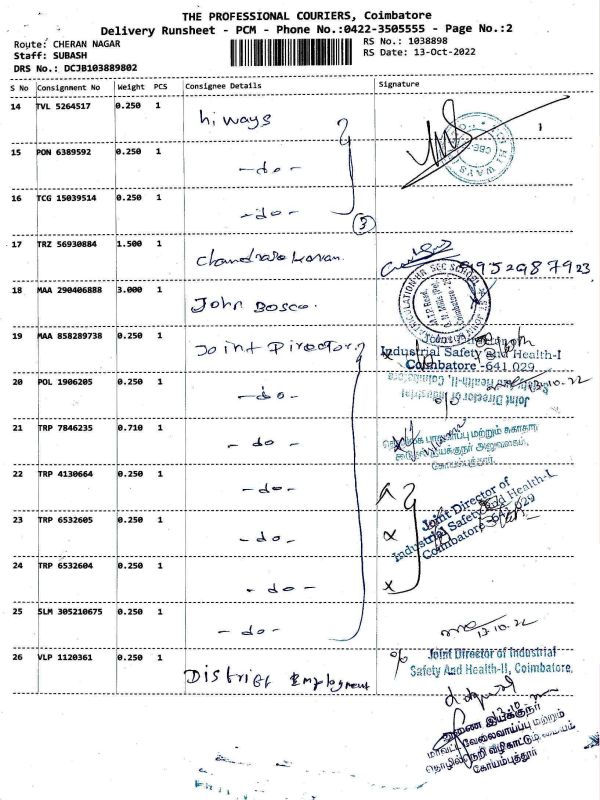 THE PROFESSIONAL COURIERS, Coimbatore
Delivery Runsheet - PCM - Phone No.:0422-3505555 - Page No.:2
Route: CHERAN NAGAR
RS No.: 1038898
Staff: SUBASH
RS Date: 13-Oct-2022
DRS No.: DCJB103889802
S No Consignment No Weight PCS Consignee Details Signature
14 TVL 5264517 0.250 1 hi ways
15 PON 6389592 0.250 1 -do-
16 TCG 15039514 0.250 1 -do-
3
17 TRZ 56930884 1.500 1 Chandrasekaran 9952987923
18 MAA 290406888 3.000 1 John Bosco.
19 MAA 858289738 0.250 1 Joint Director
Joint Director
Industrial Safety and Health-I
Coimbatore - 641 029
20 POL 1906205 0.250 1 -do- 13.10.22
Joint Director of Industrial
Safety And Health-II, Coimbatore
21 TRP 7846235 0.710 1 -do-
பாதுகாப்பு மற்றும் சுகாதார
கோயம்புத்தூர்.
22 TRP 4130664 0.250 1 -do-
Joint Director of
Industrial Safety and Health-I
Coimbatore -641 029
23 TRP 6532605 0.250 1 -do-
24 TRP 6532604 0.250 1 -do-
25 SLM 305210675 0.250 1 -do- 13.10.22
26 VLP 1120361 0.250 1 District Employment
Joint Director of Industrial
Safety And Health-II, Coimbatore.
துணை இயக்குநர்
மாவட்ட வேலைவாய்ப்பு மற்றும்
தொழில்நெறி வழிகாட்டும் மையம்
கோயம்புத்தூர்